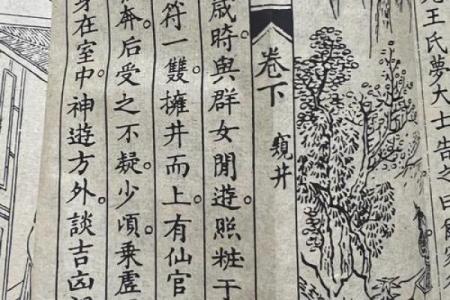 王氏夢大士告之曰
卷下
窺井
歲時與群女閒遊。照粧于
符一雙。擁井而上。有仙官
奔。后受之不疑。少頃乘虛
身在室中。神遊方外。談吉凶